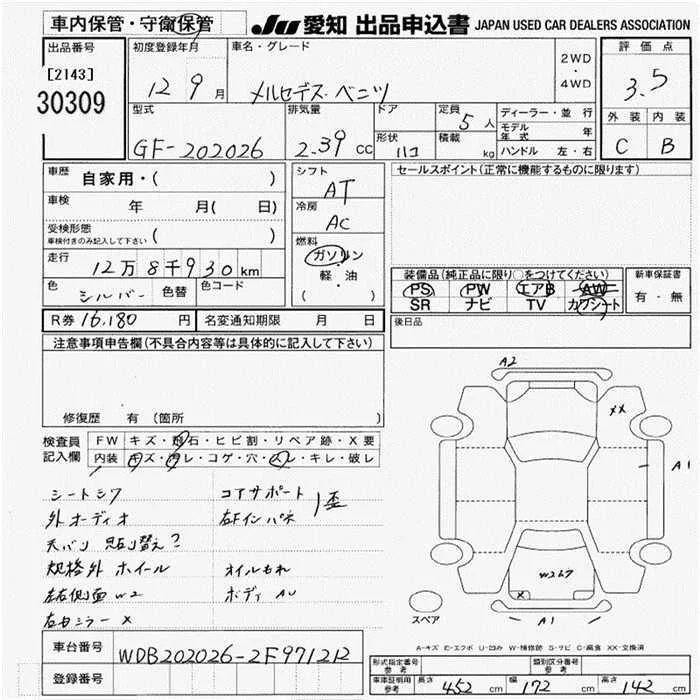 車内保管・守衛保管
JU 愛知 出品申込書 JAPAN USED CAR DEALERS ASSOCIATION
出品番号
[2143]
30309
初度登録年月
12 9 月
車名・グレード
メルセデス・ベンツ
2WD
・
4WD
評価点
3.5
外装 内装
C B
型式
GF-202026
排気量
2.39 cc
ドア
形状
ハコ
定員
5 人
積載
kg
ディーラー・並行
モデル年式 年
ハンドル 左・右
車歴
自家用・( )
車検
年 月( 日)
受検形態
車検付きのみ記入して下さい
( )
走行
12万8千930km
色
シルバー
色替
色コード
シフト
AT
冷房
AC
燃料
ガソリン
・
軽・油
( )
セールスポイント(正常に機能するものに限ります)
装備品(純正品に限り○をつけてください)
PS PW エアB AW
SR ナビ TV カワシート
新車保証書
有・無
R券 16,180 円
名変通知期限 月 日
後日品
注意事項申告欄(不具合内容等は具体的に記入して下さい)
修復歴 有 (箇所 )
検査員
記入欄
FW キズ・飛石・ヒビ割・リペア跡・X要
内装 キズ・ヨゴレ・コゲ・穴・スレ・キレ・破レ
シートシワ
外オーディオ
天バリ 貼り替え?
規格外 ホイール
左右側面 W2
左右ミラー X
コアサポート
右Fインパネ
1歪
オイルもれ
ボディ AU
A2
XX
A1
W2 6 7
X
A1
スペア
A-キズ E-エクボ U-凹み W-補修跡 S-サビ C-腐食 XX-交換済
車台番号
WDB202026-2F971212
登録番号
形式指定番号
参考
類別区分番号
参考
車庫証明用
参考
長さ 452 cm 幅 172 cm 高さ 142 cm